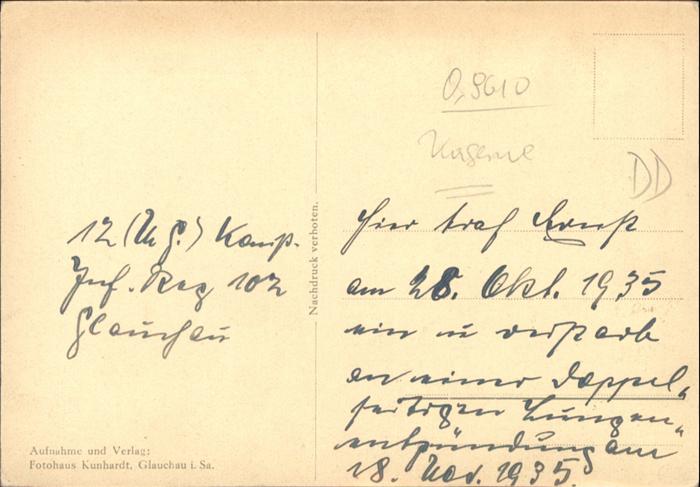 Kaserne
DD
12 (M.G.) Komp.
Inf. Reg 102
Glauchau
Aufnahme und Verlag:
Fotohaus Kunhardt, Glauchau i. Sa.
Nachdruck verboten.
Hier traf Ernst
am 28. Okt. 1935
ein u verstarb
an einer doppel„
seitigen Lungen„
entzündung am
18. Nov. 1935.